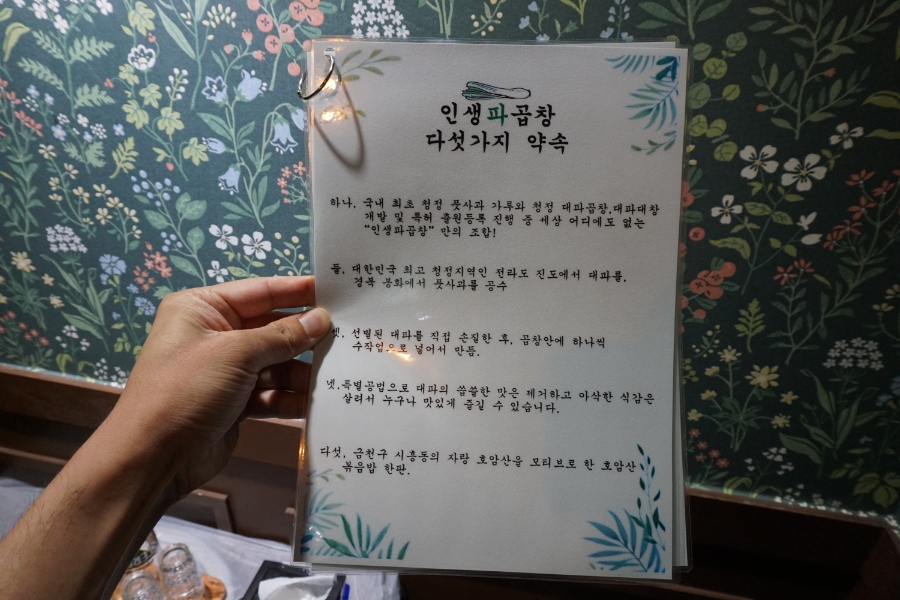 인생파곱창
다섯가지 약속
하나. 국내 최초 청정 풋사과 가루와 청정 대파곱창,대파대창
개발 및 특허 출원등록 진행 중 세상 어디에도 없는
"인생파곱창" 만의 조합!
둘. 대한민국 최고 청정지역인 전라도 진도에서 대파를,
경북 봉화에서 풋사과를 공수
셋. 선별된 대파를 직접 손질한 후, 곱창안에 하나씩
수작업으로 넣어서 만듬.
넷.특별공법으로 대파의 씁쓸한 맛은 제거하고 아삭한 식감은
살려서 누구나 맛있게 즐길 수 있습니다.
다섯. 금천구 시흥동의 자랑 호암산을 모티브로 한 호암산
볶음밥 한판.